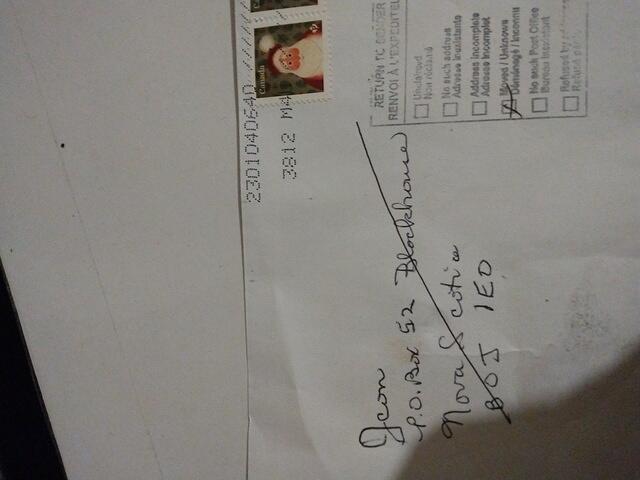 Canada
P
2301040640
3812 M4
RETURN TO SENDER
RENVOI À L'EXPÉDITEUR
Unclaimed
Non réclamé
No such address
Adresse inexistante
Address incomplete
Adresse incomplet
Moved / Unknown
Déménagé / Inconnu
No such Post Office
Bureau inexistant
Refused by
Icon
P.O. Box 52 Blockhouse
Nova Scotia
B0J 1E0